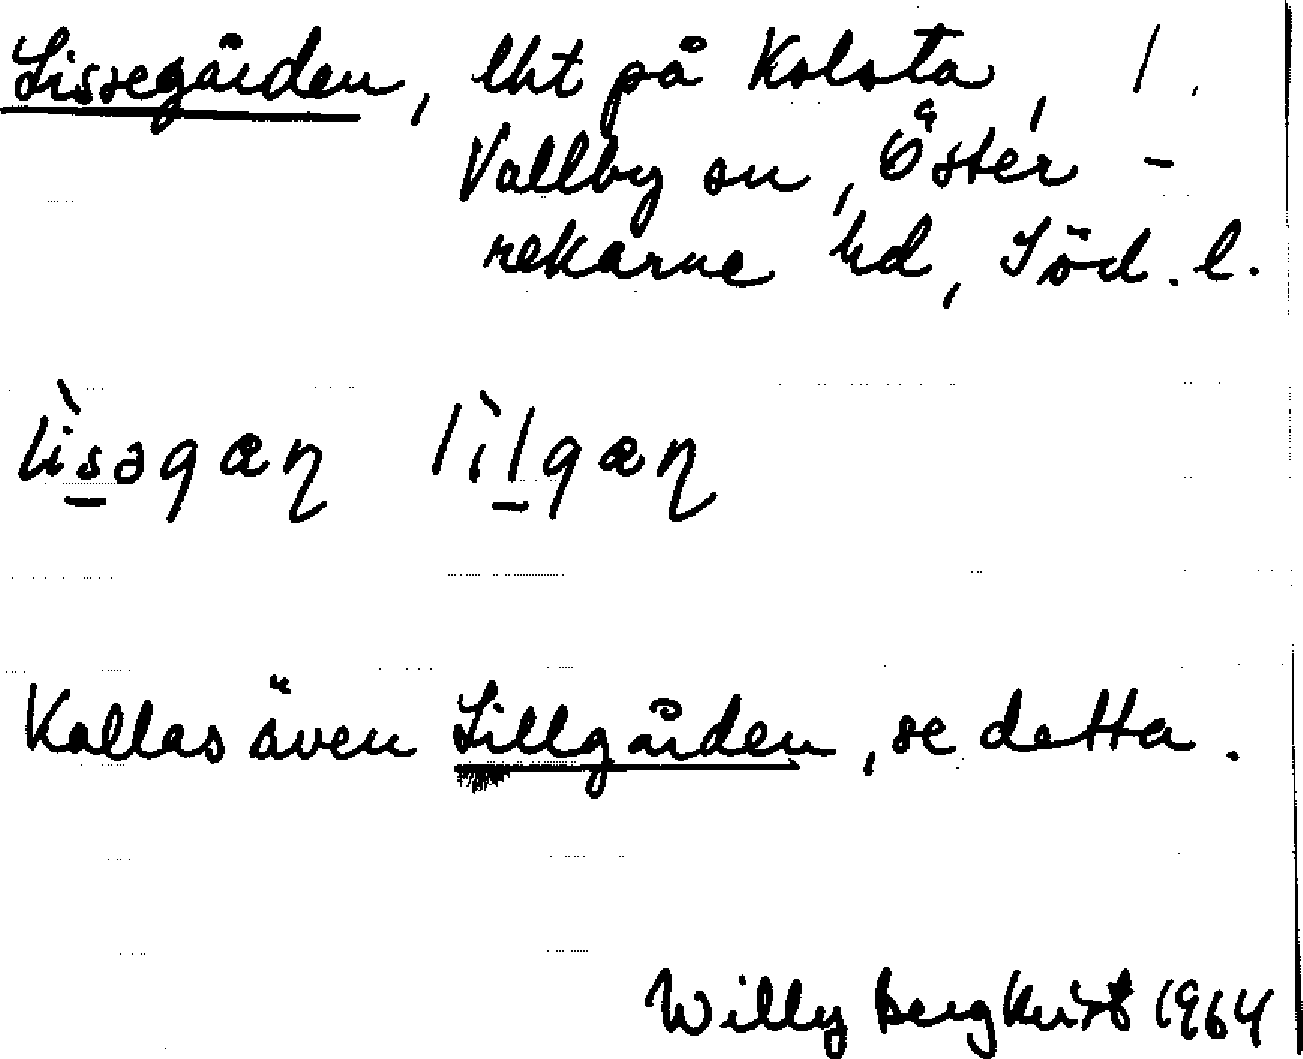 Lissegården, lht på Kolsta, 1.
Vallby sn, Öster-
rekarne hd, Söd. l.
lìs̲əgæɳ lìl̲gæɳ
Kallas även Lillgården, se detta.
Willy Bergkvist 1964